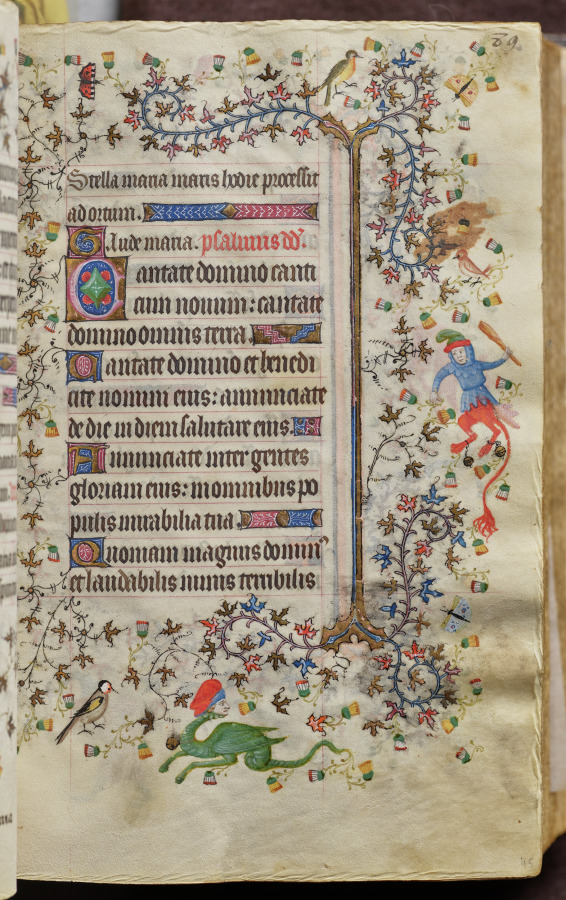 89.
Stella maria maris hodie processit
ad ortum.
Gaude maria. psalmus dd'.
Cantate domino canti
cum nouum: cantate
domino omnis terra
Cantate domino et benedi
cite nomini eius: annunciate
de die in diem salutare eius.
Annunciate inter gentes
gloriam eius: in omnibus po
pulis mirabilia tua.
Quoniam magnus domin'
et laudabilis nimis terribilis